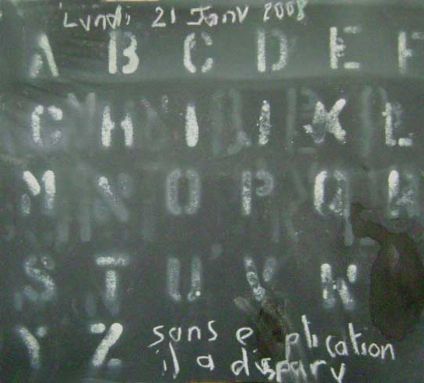 Lundi 21 Janv 2008
A B C D E F
G H I J K L
M N O P Q R
S T U V W
Y Z
sans e plication
il a disparu